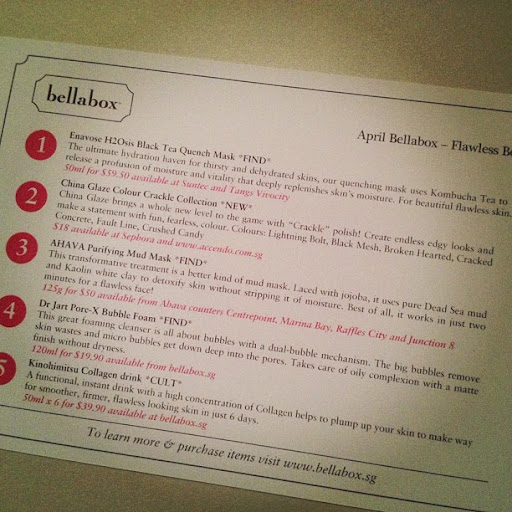 bellabox
April Bellabox – Flawless
1
Enavose H2Osis Black Tea Quench Mask *FIND*
The ultimate hydration haven for thirsty and dehydrated skins, our quenching mask uses Kombucha Tea to
release a profusion of moisture and vitality that deeply replenishes skin's moisture. For beautiful flawless skin.
50ml for $59.50 available at Suntec and Tangs Vivocity
2
China Glaze Colour Crackle Collection *NEW*
China Glaze brings a whole new level to the game with "Crackle" polish! Create endless edgy looks and
make a statement with fun, fearless, colour. Colours: Lightning Bolt, Black Mesh, Broken Hearted, Cracked
Concrete, Fault Line, Crushed Candy
$18 available at Sephora and www.accendo.com.sg
3
AHAVA Purifying Mud Mask *FIND*
This transformative treatment is a better kind of mud mask. Laced with jojoba, it uses pure Dead Sea mud
and Kaolin white clay to detoxify skin without stripping it of moisture. Best of all, it works in just two
minutes for a flawless face!
125g for $50 available from Ahava counters Centrepoint, Marina Bay, Raffles City and Junction 8
4
Dr Jart Pore-X Bubble Foam *FIND*
This great foaming cleanser is all about bubbles with a dual-bubble mechanism. The big bubbles remove
skin wastes and micro bubbles get down deep into the pores. Takes care of oily complexion with a matte
finish without dryness.
120ml for $19.90 available from bellabox.sg
5
Kinohimitsu Collagen drink *CULT*
A functional, instant drink with a high concentration of Collagen helps to plump up your skin to make way
for smoother, firmer, flawless looking skin in just 6 days.
50ml x 6 for $39.90 available at bellabox.sg
To learn more & purchase items visit www.bellabox.sg